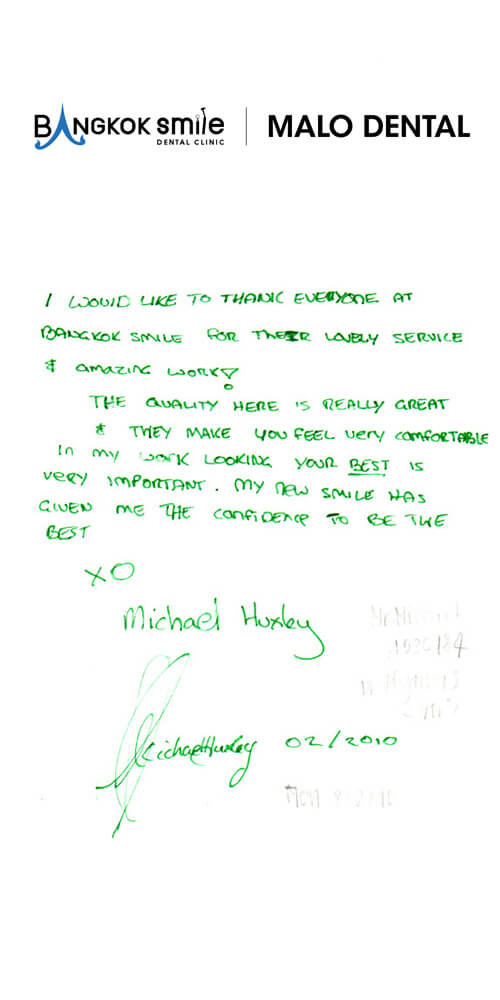 BANGKOK smile
DENTAL CLINIC
MALO DENTAL
I WOULD LIKE TO THANK EVERYONE AT
BANGKOK SMILE FOR THEIR LOVELY SERVICE
& AMAZING WORK!
THE QUALITY HERE IS REALLY GREAT
& THEY MAKE YOU FEEL VERY COMFORTABLE
IN MY WORK LOOKING YOUR BEST IS
VERY IMPORTANT. MY NEW SMILE HAS
GIVEN ME THE CONFIDENCE TO BE THE
BEST
XO
Michael Huxley
Michael Huxley 02/2010